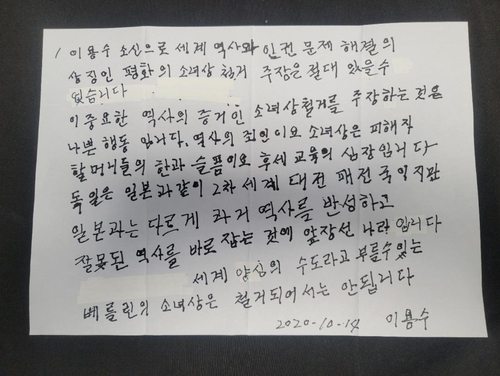 / 이용수 소신으로 세계 역사와 인권 문제 해결의
상징인 평화의 소녀상 철거 주장은 절대 있을수
없습니다
이 중요한 역사의 증거인 소녀상철거를 주장하는 것은
나쁜 행동 입니다. 역사의 죄인이요 소녀상은 피해자
할머니들의 한과 슬픔이요 후세 교육의 심장입니다
독일은 일본과 같이 2차 세계 대전 패전국 이지만
일본과는 다르게 과거 역사를 반성하고
잘못된 역사를 바로 잡는 것에 앞장선 나라 입니다
세계 양심의 수도라고 부를수있는
베를린의 소녀상은 철거되어서는 안됩니다
2020-10-14 이용수